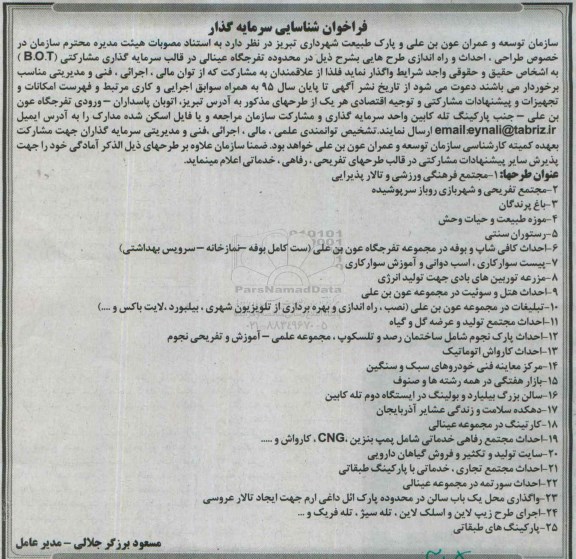 فراخوان شناسایی سرمایه گذار
سازمان توسعه و عمران عون بن علی و پارک طبیعت شهرداری تبریز در نظر دارد به استناد مصوبات هیئت مدیره محترم سازمان در
خصوص طراحی ، احداث و راه اندازی طرح هایی بشرح ذیل در محدوده تفرجگاه عینالی در قالب سرمایه گذاری مشارکتی (B.O.T )
به اشخاص حقیق و حقوقی واجد شرایط واگذار نماید فلذا از علاقمندان به مشارکت که از توان مالی ، اجرائی ، فنی و مدیریتی مناسب
برخوردار می باشند دعوت می شود از تاریخ نشر آگهی تا پایان سال ۹۵ به همراه سوابق اجرایی و کاری مرتبط و فهرست امکانات و
تجهیزات و پیشنهادات مشارکتی و توجیه اقتصادی هر یک از طرحهای مذکور به آدرس تبریز، اتوبان پاسداران – ورودی تفرجگاه عون
بن علی – جنب پارکینگ تله کابین واحد سرمایه گذاری و مشارکت سازمان مراجعه و یا فایل اسکن شده مدارک را به آدرس ایمیل
email:eynali@tabriz.ir ارسال نمایند.تشخیص توانمندی علمی ، مالی ، اجرائی ،فنی و مدیریتی سرمایه گذاران جهت مشارکت
بعهده کمیته کارشناسی سازمان توسعه و عمران عون بن علی خواهد بود. ضمنا سازمان علاوه بر طرحهای ذیل الذکر آمادگی خود را جهت
پذیرش سایر پیشنهادات مشارکتی در قالب طرحهای تفریحی ، رفاهی ، خدماتی اعلام مینماید.
عنوان طرحها: ۱–مجتمع فرهنگی ورزشی و تالار پذیرایی
۲–مجتمع تفریحی و شهربازی روباز سرپوشیده
۳–باغ پرندگان
۴–موزه طبیعت و حیات وحش
۵–رستوران سنتی
۶–احداث کافی شاپ و بوفه در مجموعه تفرجگاه عون بن علی (ست کامل بوفه –نمازخانه –سرویس بهداشتی)
۷–پیست سوارکاری ، اسب دوانی و آموزش سوارکاری
۸–مزرعه توربین های بادی جهت تولید انرژی
۹–احداث هتل و سوئیت در مجموعه عون بن علی
۱۰–تبلیغات در مجموعه عون بن علی (نصب ، راه اندازی و بهره برداری از تلویزیون شهری ، بیلبورد ،لایت باکس و ....)
۱۱–احداث مجتمع تولید و عرضه گل و گیاه
۱۲–احداث پارک نجوم شامل ساختمان رصد و تلسکوپ ، مجموعه علمی – آموزش و تفریحی نجوم
۱۳–احداث کارواش اتوماتیک
۱۴–مرکز معاینه فنی خودروهای سبک و سنگین
۱۵–بازار هفتگی در همه رشته ها و صنوف
۱۶–سالن بزرگ بیلیارد و بولینگ در ایستگاه دوم تله کابین
۱۷–دهکده سلامت و زندگی عشایر آذربایجان
۱۸–کارتینگ در مجموعه عینالی
۱۹–احداث مجتمع رفاهی خدماتی شامل پمپ بنزین ،CNG ، کارواش و .....
۲۰–سایت تولید و تکثیر و فروش گیاهان دارویی
۲۱–احداث مجتمع تجاری ، خدماتی با پارکینگ طبقاتی
۲۲–احداث سورتمه در مجموعه عینالی
۲۳–واگذاری محل یک باب سالن در محدوده پارک ائل داغی ارم جهت ایجاد تالار عروسی
۲۴–اجرای طرح زیپ لاین و اسلک لاین ، تله سیژ ، تله فریک و ...
۲۵–پارکینگ های طبقاتی
مسعود برزگر جلالی – مدیر عامل
ParsNamadData
۰۲۱–۸۸۳۴۹۶۷۰–۵